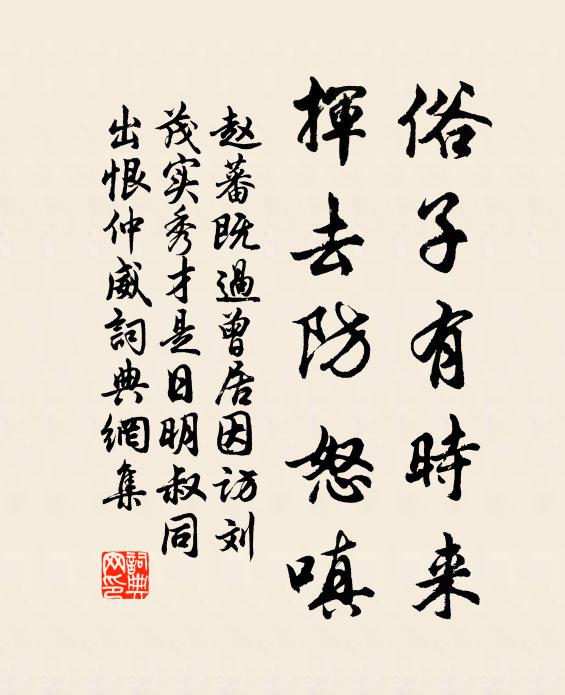 俗子有時来
揮去防怒嗔
赵蕃既過曾居因访刘
茂实秀才是日明叔同
出恨仲威詞典網集
詞典
网印